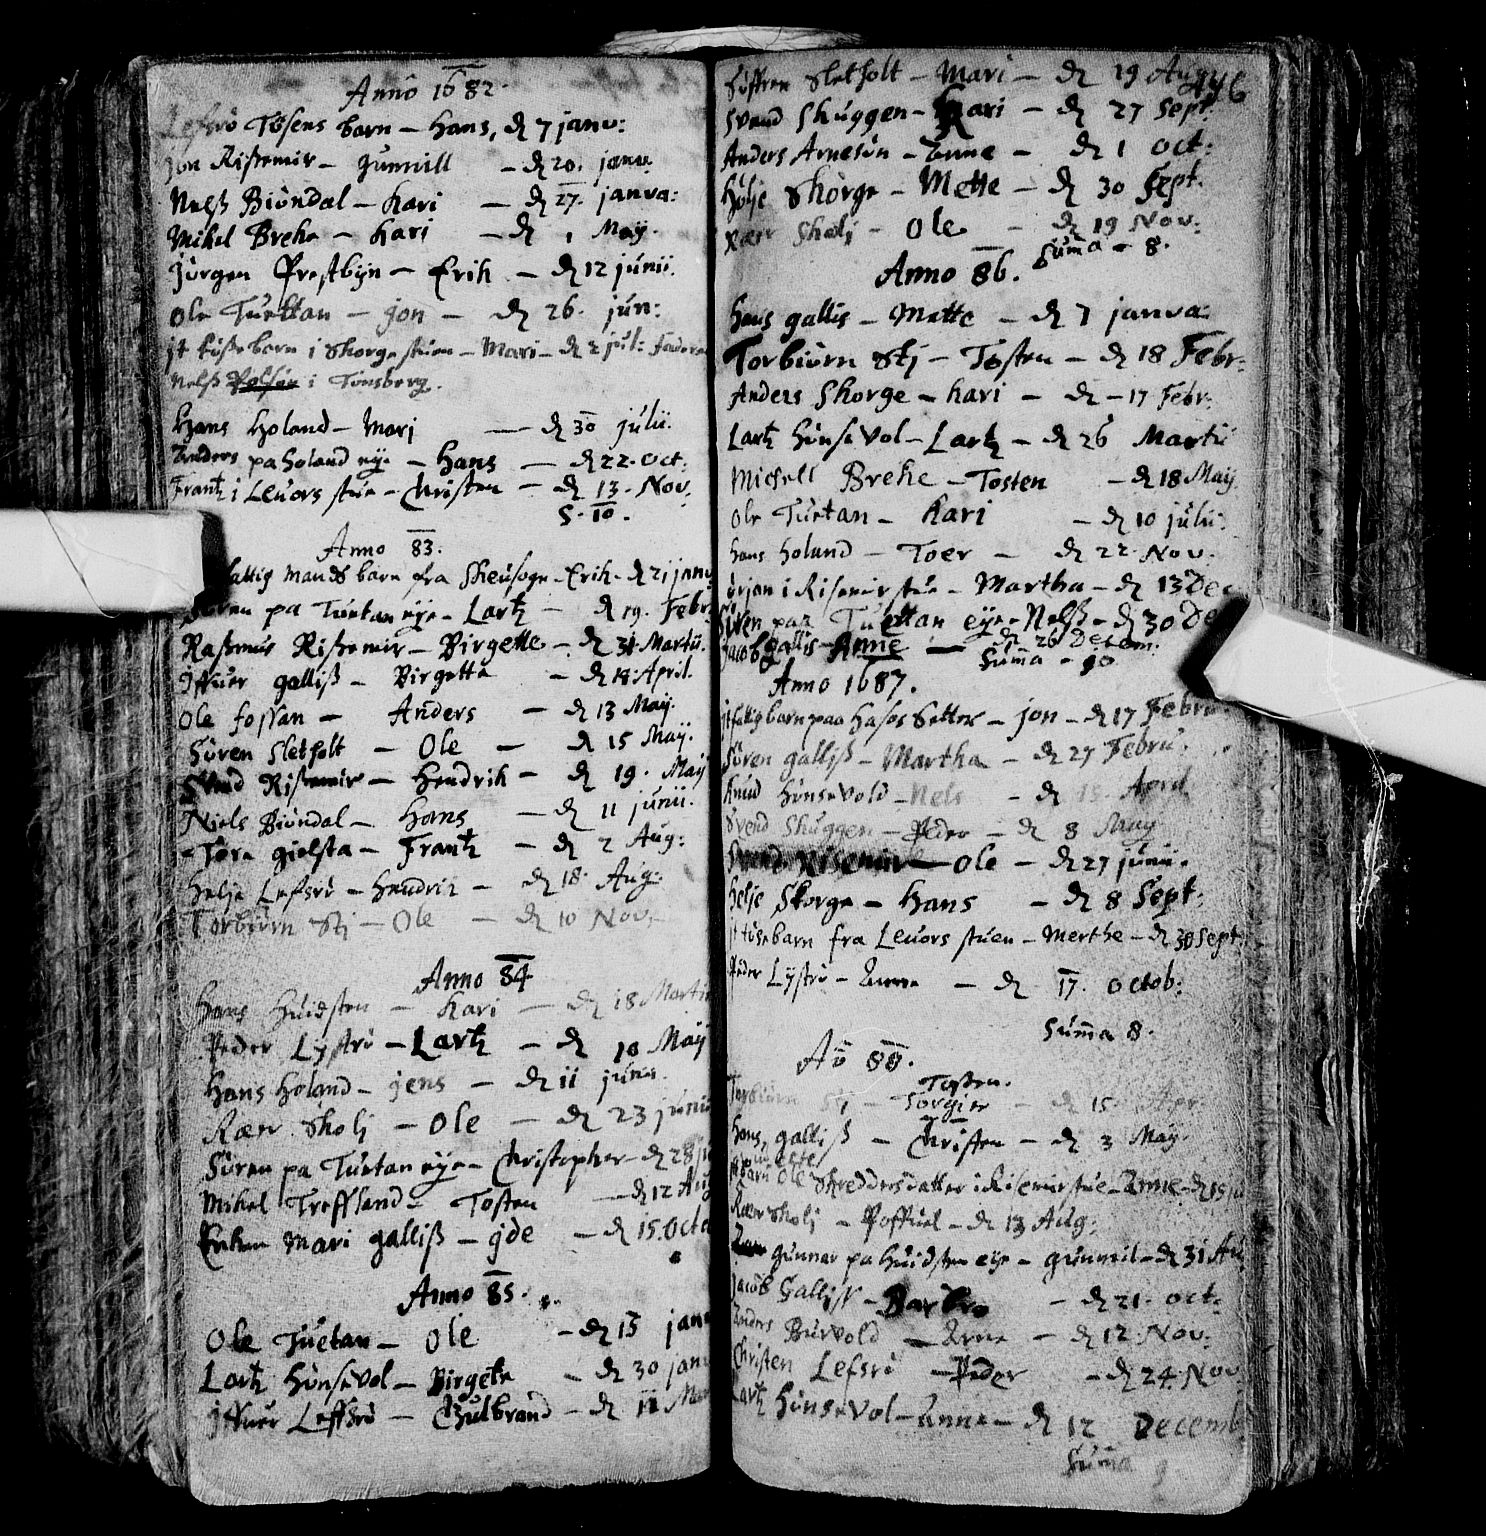 Anno 1682.
Lefsrö Tösens barn – Hans, d 7 janv:
Jon Risemir – gunnill – d 20. janv.
Nelß Biöndal – Kari – d 27. janva:
Mikel Breke – Kari – d 1 Maij.
Jörgen Prestbÿn – Erik – d 12 junii.
Ole Tuettan – jon – d 26. jun:
jt barn i Skorge stuen – Mari – d 2 jul: Faderen
Nelß i Tønsberg.
Hans Holand – Marj – d 30 julii.
Anders pa Holand eye – Hans – d 22. Oct:
Frantz i Leuors stue – Christen – d 13. Nov.
S. 10.
Anno 83.
fattig Mands barn fra Skeusogn – Erik – d 21 janv
Sören pa Tuetan eye – Lartz – d 19. Febr
Raßmus Risemir – Birgette – d 31 Martii.
Iffuer galliß – Birgette – d 18 April.
Ole fossan – Anders – d 13 Maij.
Sören Sletholt – Ole – d 15 Maij.
Svend Risemir – Hendrik – d 19. Maij
Niels Biöndal – Hans – d 11 junii.
Tore gielsta – Frantz – d 2 Aug:
Helje Lefsrö – Hendrik – d 18. Aug:
Torbiörn Stj – Ole – d 10 Nov.
Anno 84
Hans Huidsten – Kari – d 18 Martii
Peder Lÿströ – Lartz – d 10 Maij
Hans Holand – jens – d 11 juni.
Rær Skolj – Ole – d 23 junii
Sören pa Tuetan eye – Christopher – d 28 ju
Mikel Treffland – Tosten – d 12 Aug
Enken Mari galliß – jde – d 15. Octo
Anno 85.
Ole Tuetan – Ole – d 15 janv
Lartz Hönsevol – Birgete – d 30 janv
Iffuer Leffsrö – Gulbrand – d 11 Mar
Söffren Sletholt – Mari – d 19 Aug
46
Svend Skuggen – Kari – d 27 Sept.
Anders Arnesön – Anne – d 1 Oct:
Helje Skorge – Mette – d 30 Sept.
Rær Skolj – Ole – d 19 Nov:
Suma – 8.
Anno 86.
Hans gallis – Mette – d 7 janva:
Torbiörn Stj – Tosten – d 18 Febr:
Anders Skorge – Kari – d 17 Febr:
Lartz Hönsevol – Lartz – d 26 Martii
Michell Breke – Tosten – d 18 Maij
Ole Tuetan – Kari – d 10 julii.
Hans Holand – Toer – d 22 Nov.
örjan i Risemir stue – Martha – d 13 Dec
Sören paa Tuettan eye – Nelß – d 30 De
Jacob gallis – Anne – d 26 Decem.
Suma – 10
Anno 1687.
jt fattig barn paa Hasos Setter – jon – d 17 Febru
Sören galliß – Martha – d 27 Febru.
Knud Hönsevold – Nels – d 15 April
Svend Skuggen – Peder – d 8 Maij
Svend Risemir – Ole – d 27 junii.
Helje Skorge – Hans – d 8 Sept:
jt tösebarn fra Leuors stuen – Merthe – d 30 Sept:
Peder Lyströ – Anne – d 17. Octob:
Suma 8.
Aō 88.
Tosten.
Torbiörn Stj – Torgier – d 15 Apr
Hans galliß – Christen – d 3 Maij.
barn Ole Skredders datter i Risemir stue – Anne – d 15 ju
Rær Skolj – Poffuel – d 13 Aug:
gunner pa Huidsten eye – gunnil – d 31 Au
Jacob Galliß – Barbro – d 21. Oct:
Anders Burvold – Arne – d 12. Nov:
Christen Lefsrö – Peder – d 24 Nov
Lartz Hönsevol – Anne – d 12 Decemb
Suma 9